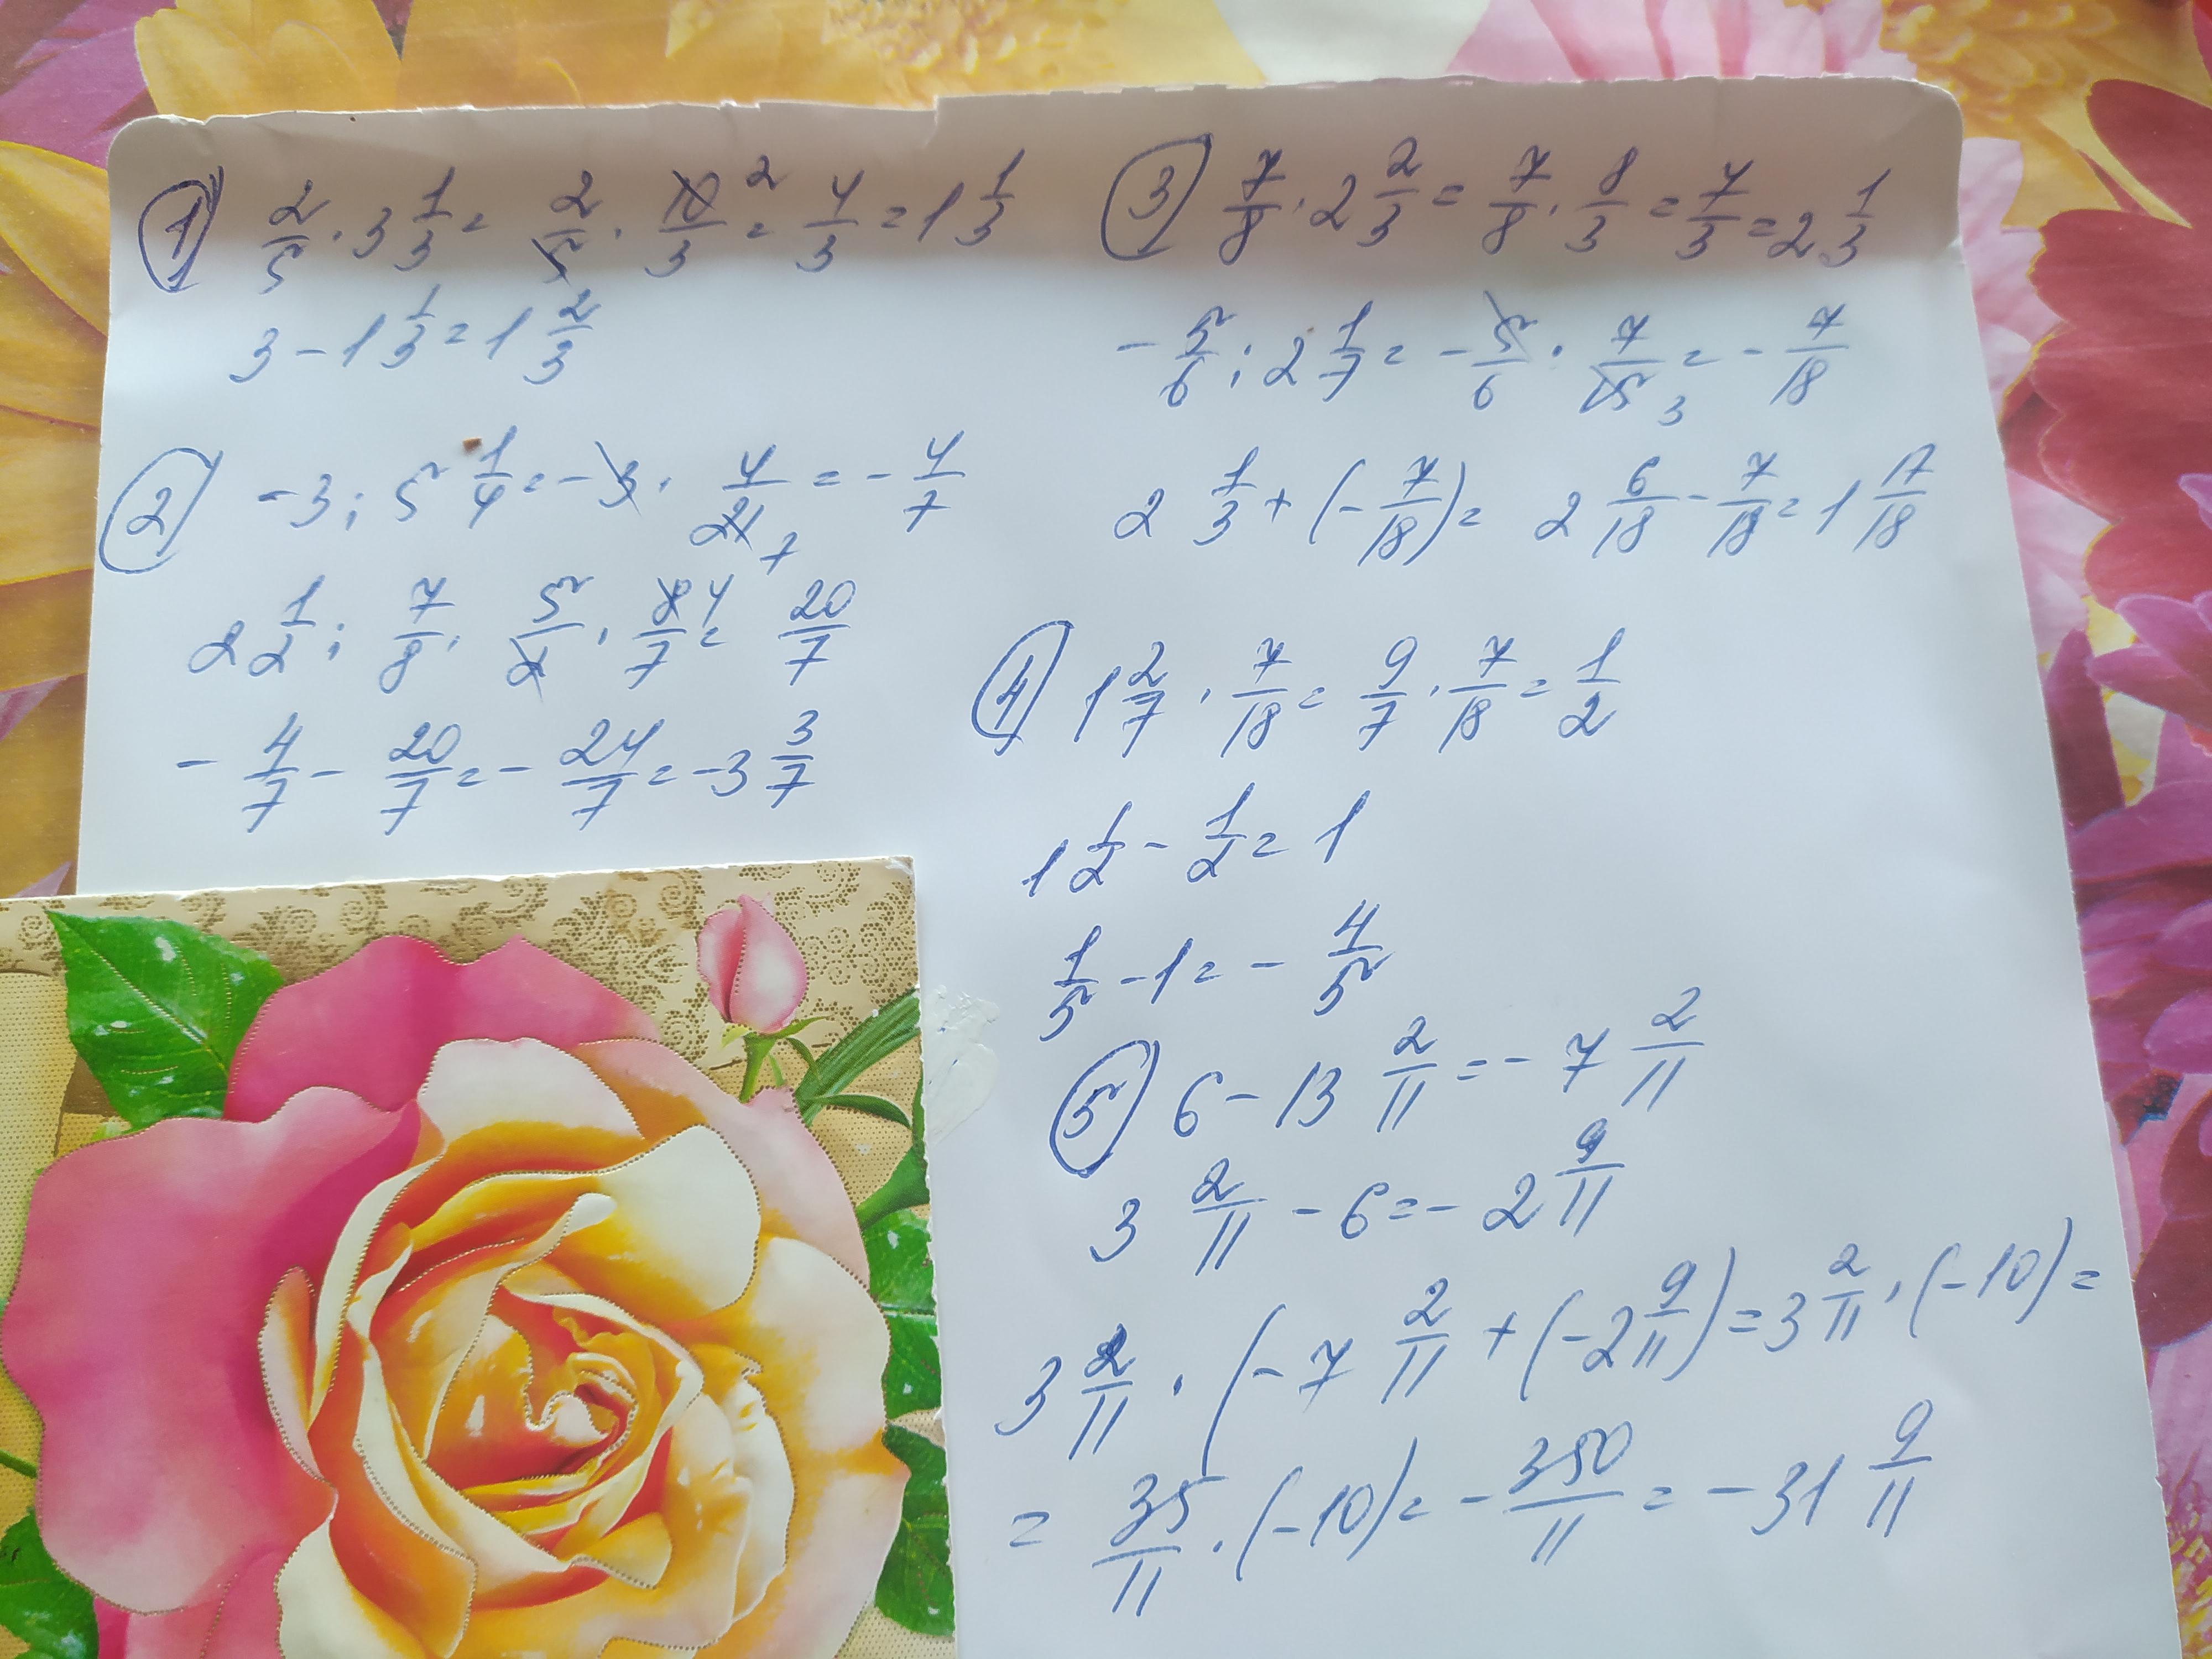 ① 2/5 · 3 1/3 = 2/5 · 10/3 2 = 4/3 = 1 1/3
3 - 1 1/3 = 1 2/3
② -3 : 5 1/4 = -3 · 4/21 7 = - 4/7
2 1/2 : 7/8 · 5/2 · 8/7 4 = 20/7
- 4/7 - 20/7 = - 24/7 = -3 3/7
③ 7/8 · 2 2/3 = 7/8 · 8/3 = 7/3 = 2 1/3
- 5/6 : 2 1/7 = - 5/6 · 7/15 3 = - 7/18
2 1/3 + (- 7/18) = 2 6/18 - 7/18 = 1 17/18
④ 1 2/7 · 7/18 = 9/7 · 7/18 = 1/2
1 1/2 - 1/2 = 1
1/5 - 1 = - 4/5
⑤ 6 - 13 2/11 = - 7 2/11
3 2/11 - 6 = - 2 9/11
3 2/11 · (- 7 2/11 + (-2 9/11) = 3 2/11 · (-10) =
= 35/11 · (-10) = - 350/11 = - 31 9/11